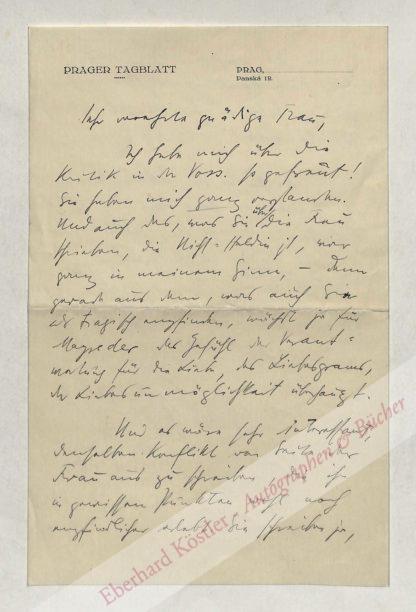 PRAGER TAGBLATT
PRAG,
Panská 12.
Sehr verehrte gnädige Frau,
Ich habe mich über die
Kritik in der Voss. so gefreut!
Sie haben mich ganz verstanden.
Und auch das, was Sie über die Frau
schrieben, die Nicht-Heldin ist, war
ganz in meinem Sinn, – denn
gerade aus dem, was auch Sie
als tragisch empfinden, wächst ja für
das Gefühl der Verant-
wortung für die Liebe, des Liebesgrams,
der Liebesunmöglichkeit überhaupt.
Und es wäre sehr interessant,
denselben Konflikt von Seite der
Frau aus zu schreiben, die ihn
in gewissen Punkten wohl noch
empfindlicher erlebt. Sie schreiben ja,
Eberhard Köstler - Autographen & Bücher